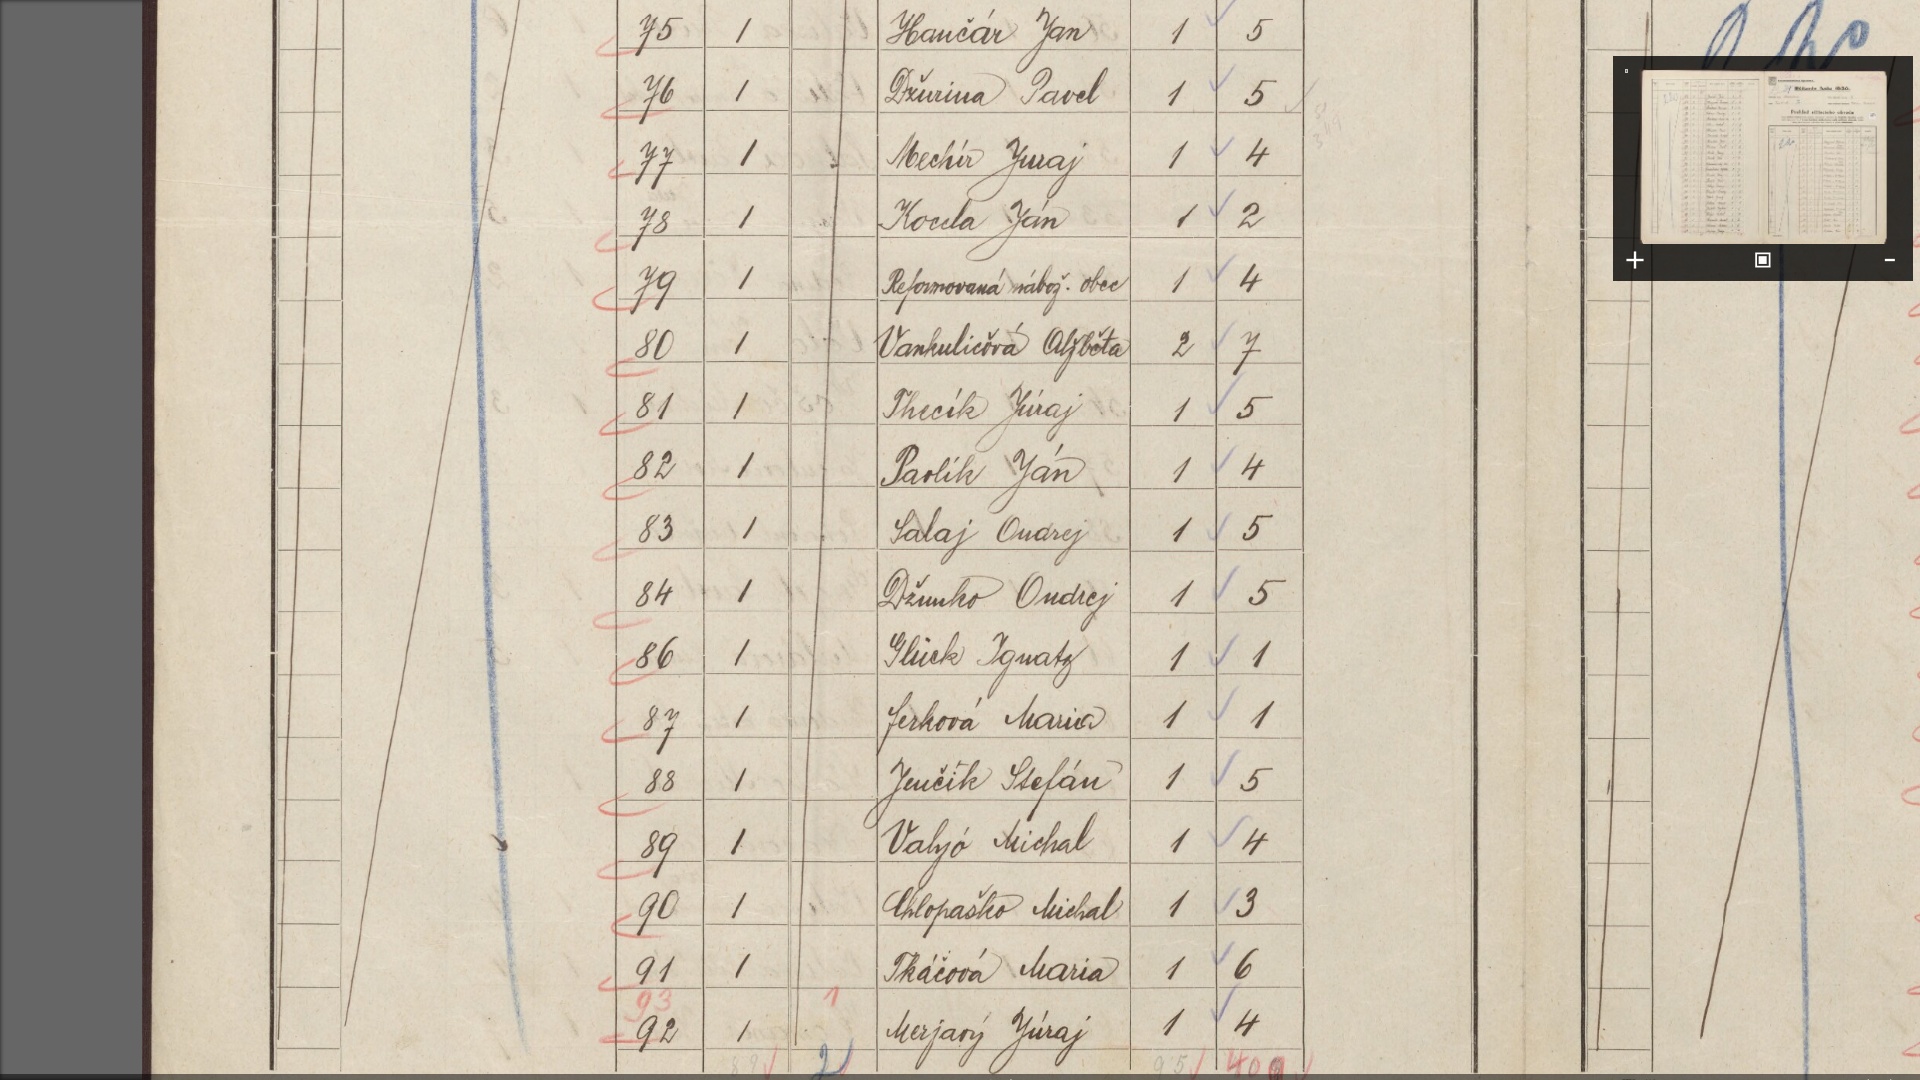 75 1 Hančár Jan 1 5
76 1 Džurina Pavel 1 5
77 1 Mechír Juraj 1 4
78 1 Kocela Ján 1 2
79 1 Reformovaná nábož. obec 1 4
80 1 Vankuličová Alžběta 2 7
81 1 Thecík Júraj 1 5
82 1 Pavlík Ján 1 4
83 1 Salaj Ondrej 1 5
84 1 Džunko Ondrej 1 5
86 1 Glück Ignatz 1 1
87 1 Ferková Maria 1 1
88 1 Jenčík Štefán 1 5
89 1 Valyó Michal 1 4
90 1 Chlopaško Michal 1 3
91 1 Tkáčová Maria 1 6
93 1
92 1 Merjavý Júraj 1 4
89 2 95 409